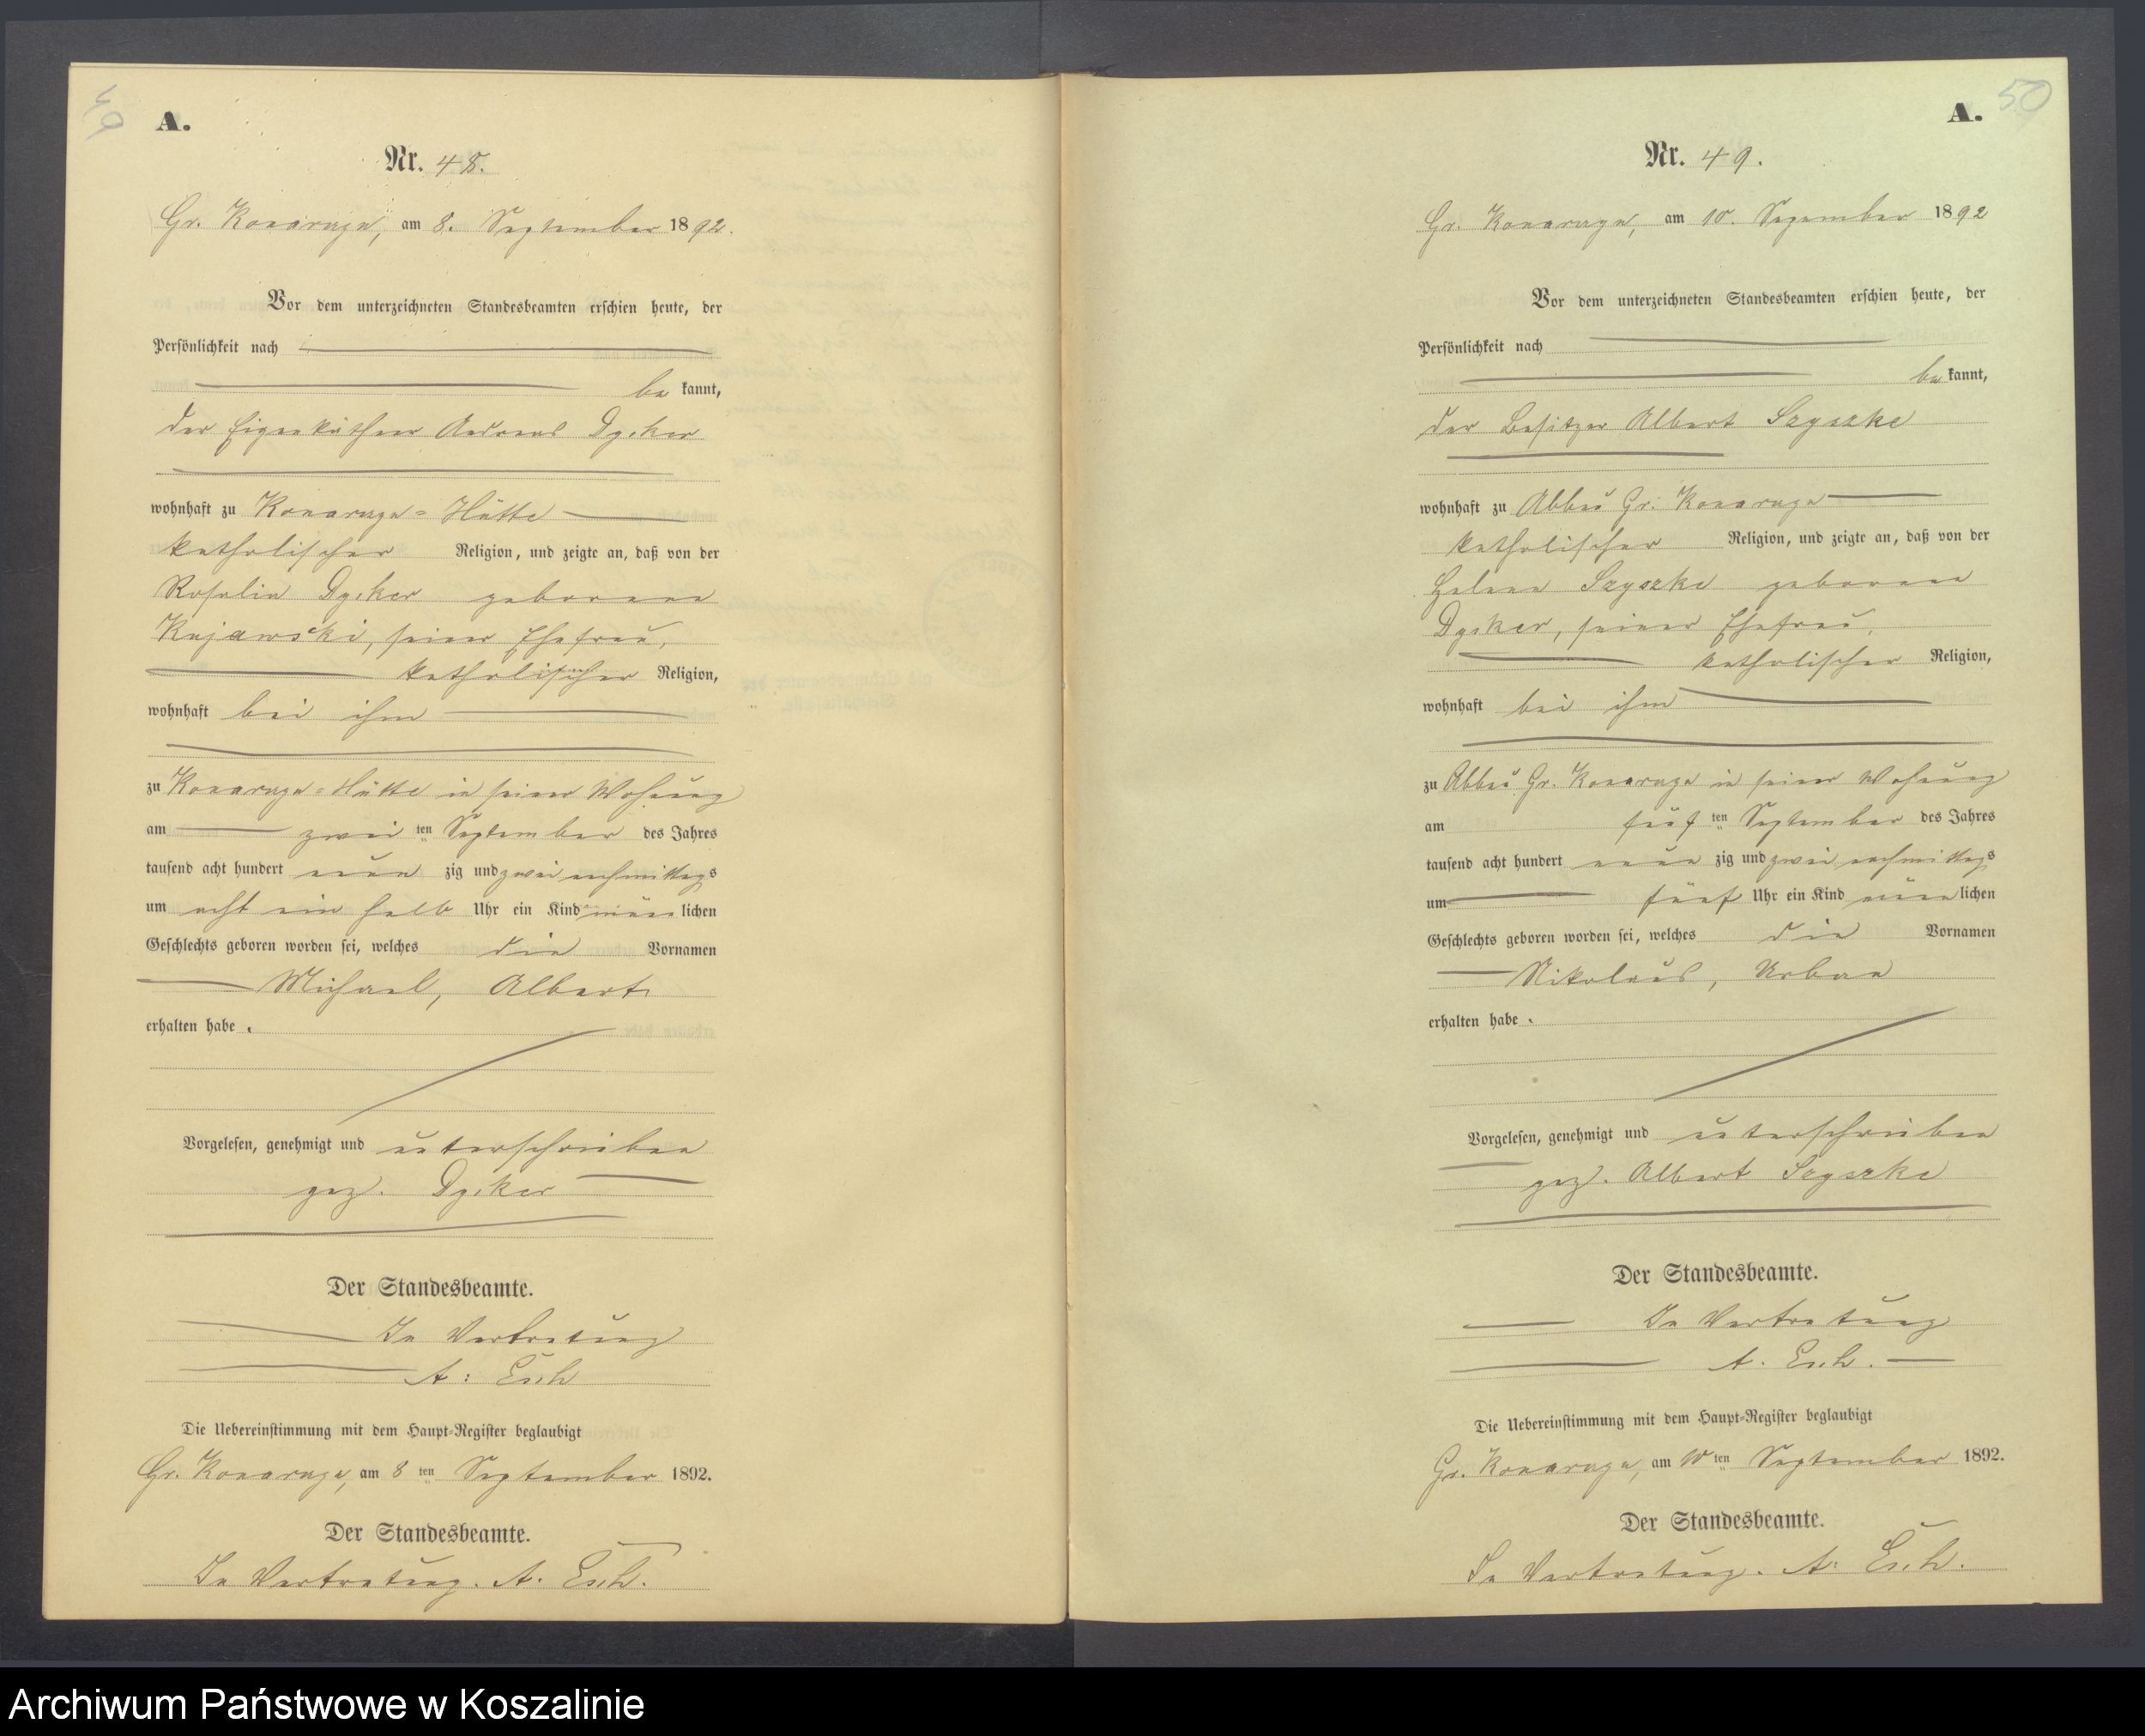 49
A.
Nr. 48.
Gr. Konarczyn, am 8. September 1892.
Vor dem unterzeichneten Standesbeamten erschien heute, der
Persönlichkeit nach
be kannt,
der Eigenkäthner Andreas
wohnhaft zu Konarczyn=Hütte
katholischer Religion, und zeigte an, daß von der
Rosalie geborene
Kujawski, seiner Ehefrau,
katholischer Religion,
wohnhaft bei ihm
zu Konarczyn=Hütte in seiner Wohnung
am zwei ten September des Jahres
tausend acht hundert neun zig und zwei nachmittags
um acht ein halb Uhr ein Kind männlichen
Geschlechts geboren worden sei, welches die Vornamen
Michael, Albert
erhalten habe.
Vorgelesen, genehmigt und unterschrieben
gez.
Der Standesbeamte.
In Vertretung
A. Esch
Die Uebereinstimmung mit dem Haupt-Register beglaubigt
Gr. Konarczyn, am 8 ten September 1892.
Der Standesbeamte.
In Vertretung. A. Esch.
50
A.
Nr. 49.
Gr. Konarczyn, am 10. September 1892
Vor dem unterzeichneten Standesbeamten erschien heute, der
Persönlichkeit nach
be kannt,
der Besitzer Albert Szyszke
wohnhaft zu Abbau Gr. Konarczyn
katholischer Religion, und zeigte an, daß von der
Helene Szyszke geborene
seiner Ehefrau,
katholischer Religion,
wohnhaft bei ihm
zu Abbau Gr. Konarczyn in seiner Wohnung
am fünf ten September des Jahres
tausend acht hundert neun zig und zwei nachmittags
um fünf Uhr ein Kind männlichen
Geschlechts geboren worden sei, welches die Vornamen
Nikolaus, Urban
erhalten habe.
Vorgelesen, genehmigt und unterschrieben
gez. Albert Szyszke
Der Standesbeamte.
In Vertretung
A. Esch.
Die Uebereinstimmung mit dem Haupt-Register beglaubigt
Gr. Konarczyn, am 10 ten September 1892.
Der Standesbeamte.
In Vertretung. A. Esch.
Archiwum Państwowe w Koszalinie